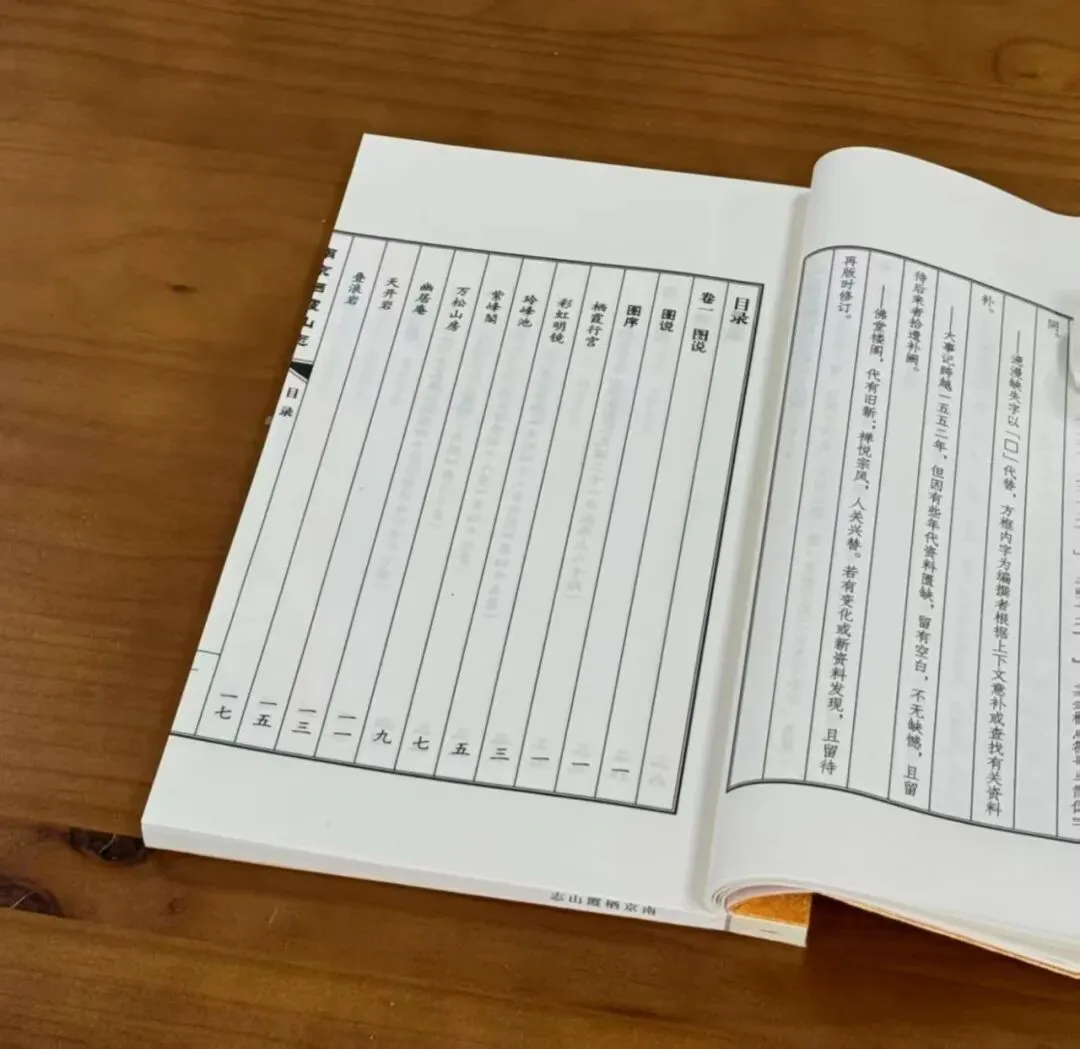 同。
——漫漶缺失字以「□」代替，方框内字为编撰者根据上下文意补或查找有关资料
补。
——大事记跨越一五五二年，但因有些年代资料匮缺，留有空白，不无缺憾，且留
待后来者拾遗补阙。
——佛堂楼阁，代有旧新；禅悦宗风，人关兴替。若有变化或新资料发现，且留待
再版时修订。
目录
卷一 图说 一
图说 一
图序 一
栖霞行宫 三
彩虹明镜 五
玲峰池 七
紫峰閣 九
万松山房 一一
幽居庵 一三
天开岩 一五
叠浪岩 一七
南京栖霞山志 目录 一
南京栖霞山志 一